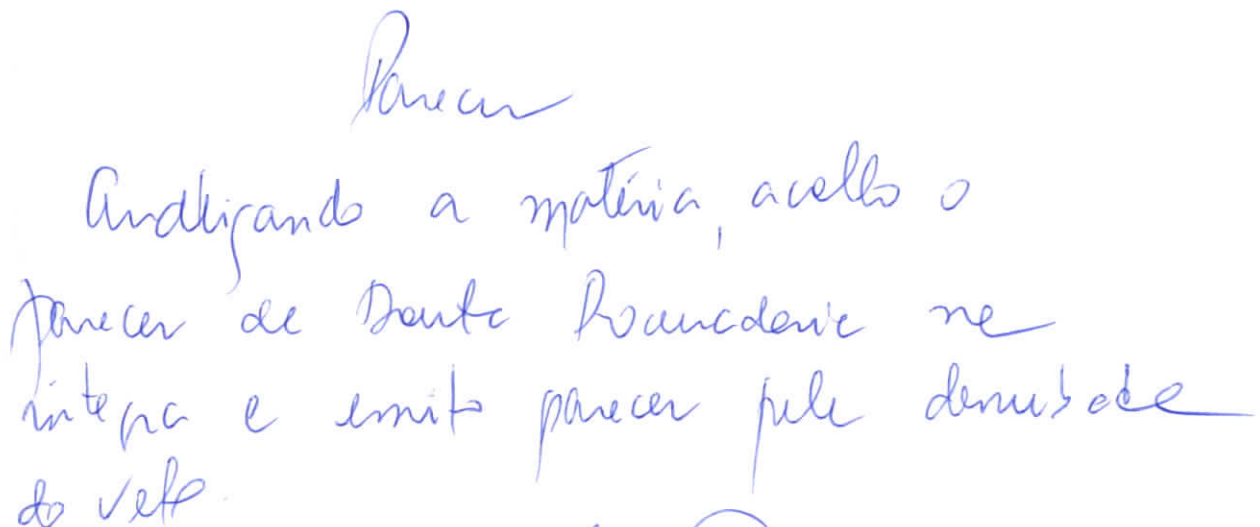 Parecer
Analizando a matéria, acolho o
parecer da Douta Procuradoria na
íntegra e emito parecer pela derrubada
do veto.